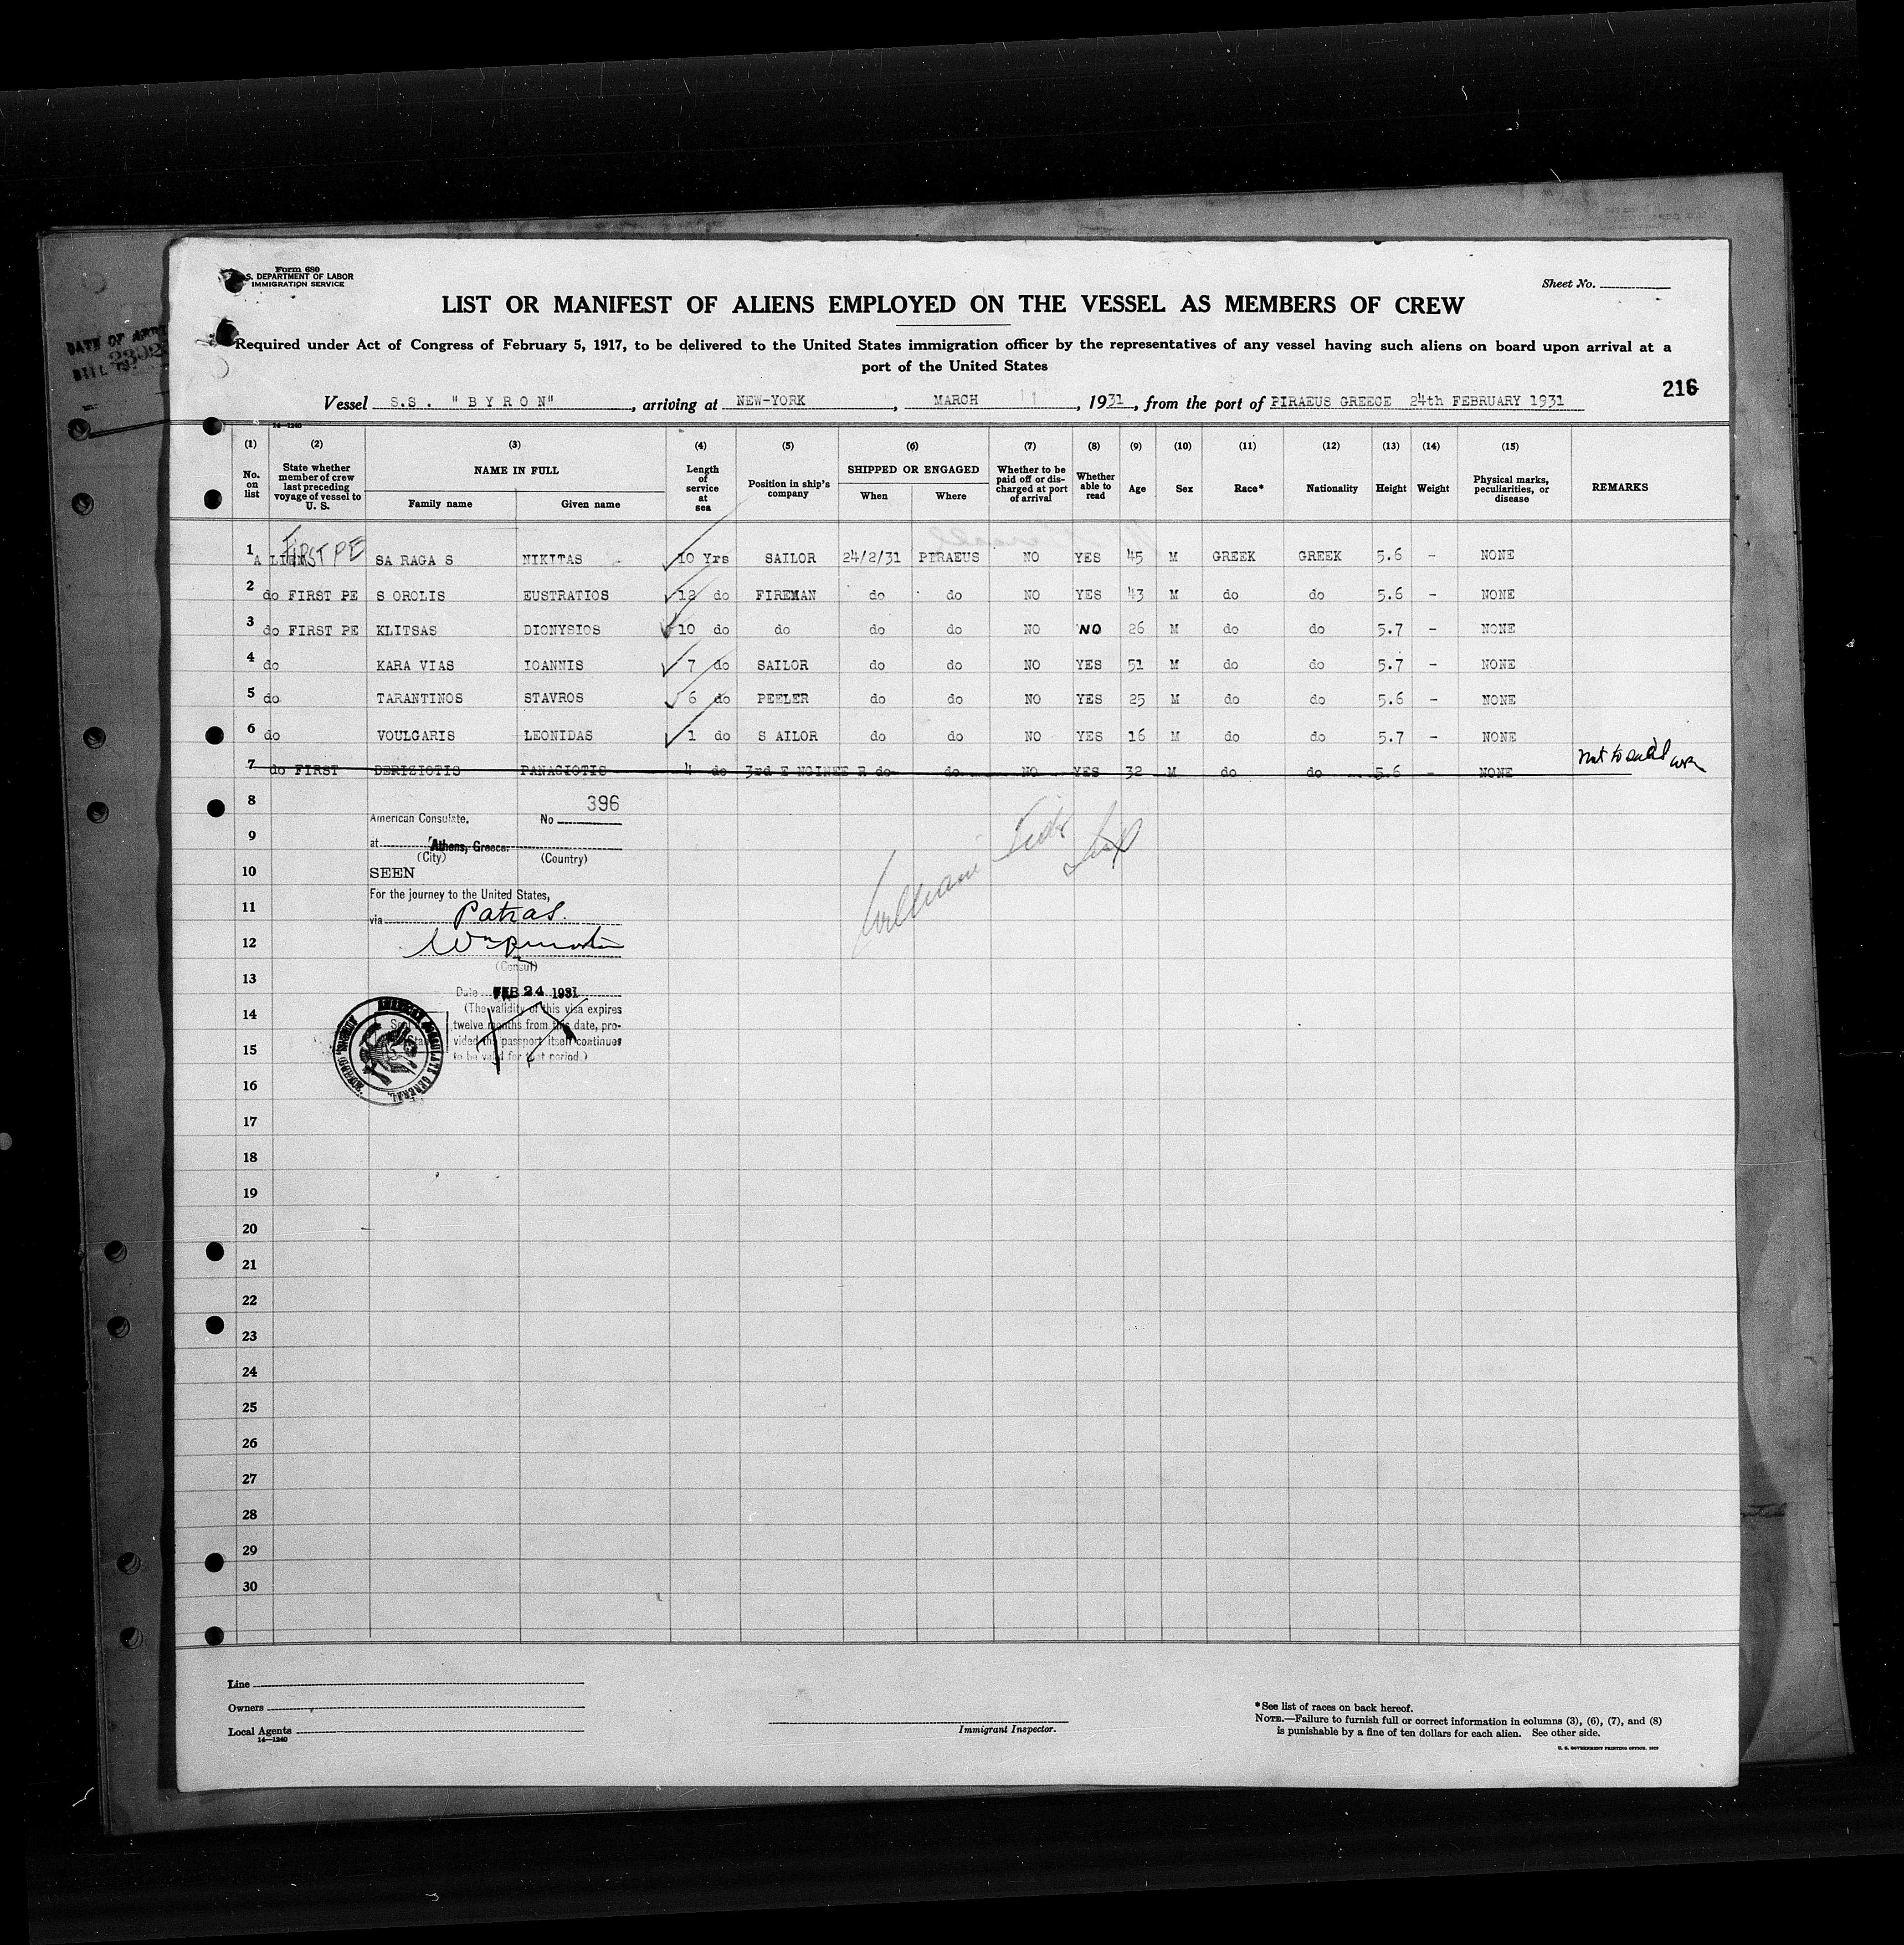 Form 680
S. DEPARTMENT OF LABOR
IMMIGRATION SERVICE
Sheet No.
LIST OR MANIFEST OF ALIENS EMPLOYED ON THE VESSEL AS MEMBERS OF CREW
Required under Act of Congress of February 5, 1917, to be delivered to the United States immigration officer by the representatives of any vessel having such aliens on board upon arrival at a
port of the United States
216
Vessel S.S. "BYRON", arriving at NEW-YORK, MARCH 11, 1931, from the port of PIRAEUS GREECE 24th FEBRUARY 1931
14—1240
(1) (2) (3) (4) (5) (6) (7) (8) (9) (10) (11) (12) (13) (14) (15)
No. on list
State whether member of crew last preceding voyage of vessel to U. S.
NAME IN FULL
Family name
Given name
Length of service at sea
Position in ship's company
SHIPPED OR ENGAGED
When
Where
Whether to be paid off or discharged at port of arrival
Whether able to read
Age
Sex
Race*
Nationality
Height
Weight
Physical marks, peculiarities, or disease
REMARKS
1 A LIEN FIRST PE SA RAGA S NIKITAS 10 Yrs SAILOR 24/2/31 PIRAEUS NO YES 45 M GREEK GREEK 5.6 - NONE
2 do FIRST PE S OROLIS EUSTRATIOS 12 do FIREMAN do do NO YES 43 M do do 5.6 - NONE
3 do FIRST PE KLITSAS DIONYSIOS 10 do do do do NO NO 26 M do do 5.7 - NONE
4 do KARA VIAS IOANNIS 7 do SAILOR do do NO YES 51 M do do 5.7 - NONE
5 do TARANTINOS STAVROS 6 do PEELER do do NO YES 25 M do do 5.6 - NONE
6 do VOULGARIS LEONIDAS 1 do S AILOR do do NO YES 16 M do do 5.7 - NONE
7 do FIRST DERIZIOTIS PANAGIOTIS 4 do 3rd E NGINEE R do do NO YES 32 M do do 5.6 - NONE not to sail
8
9
10
11
12
13
14
15
16
17
18
19
20
21
22
23
24
25
26
27
28
29
30
396
American Consulate. No
at Athens, Greece.
(City) (Country)
SEEN
For the journey to the United States,
via Patras.
(Consul)
Date FEB 24 1931
(The validity of this visa expires
twelve months from this date, pro-
vided the passport itself continues
to be valid for that period.)
AMERICAN CONSULATE GENERAL
William
Line
Owners
Local Agents
14—1240
Immigrant Inspector.
*See list of races on back hereof.
NOTE.—Failure to furnish full or correct information in columns (3), (6), (7), and (8)
is punishable by a fine of ten dollars for each alien. See other side.
U. S. GOVERNMENT PRINTING OFFICE